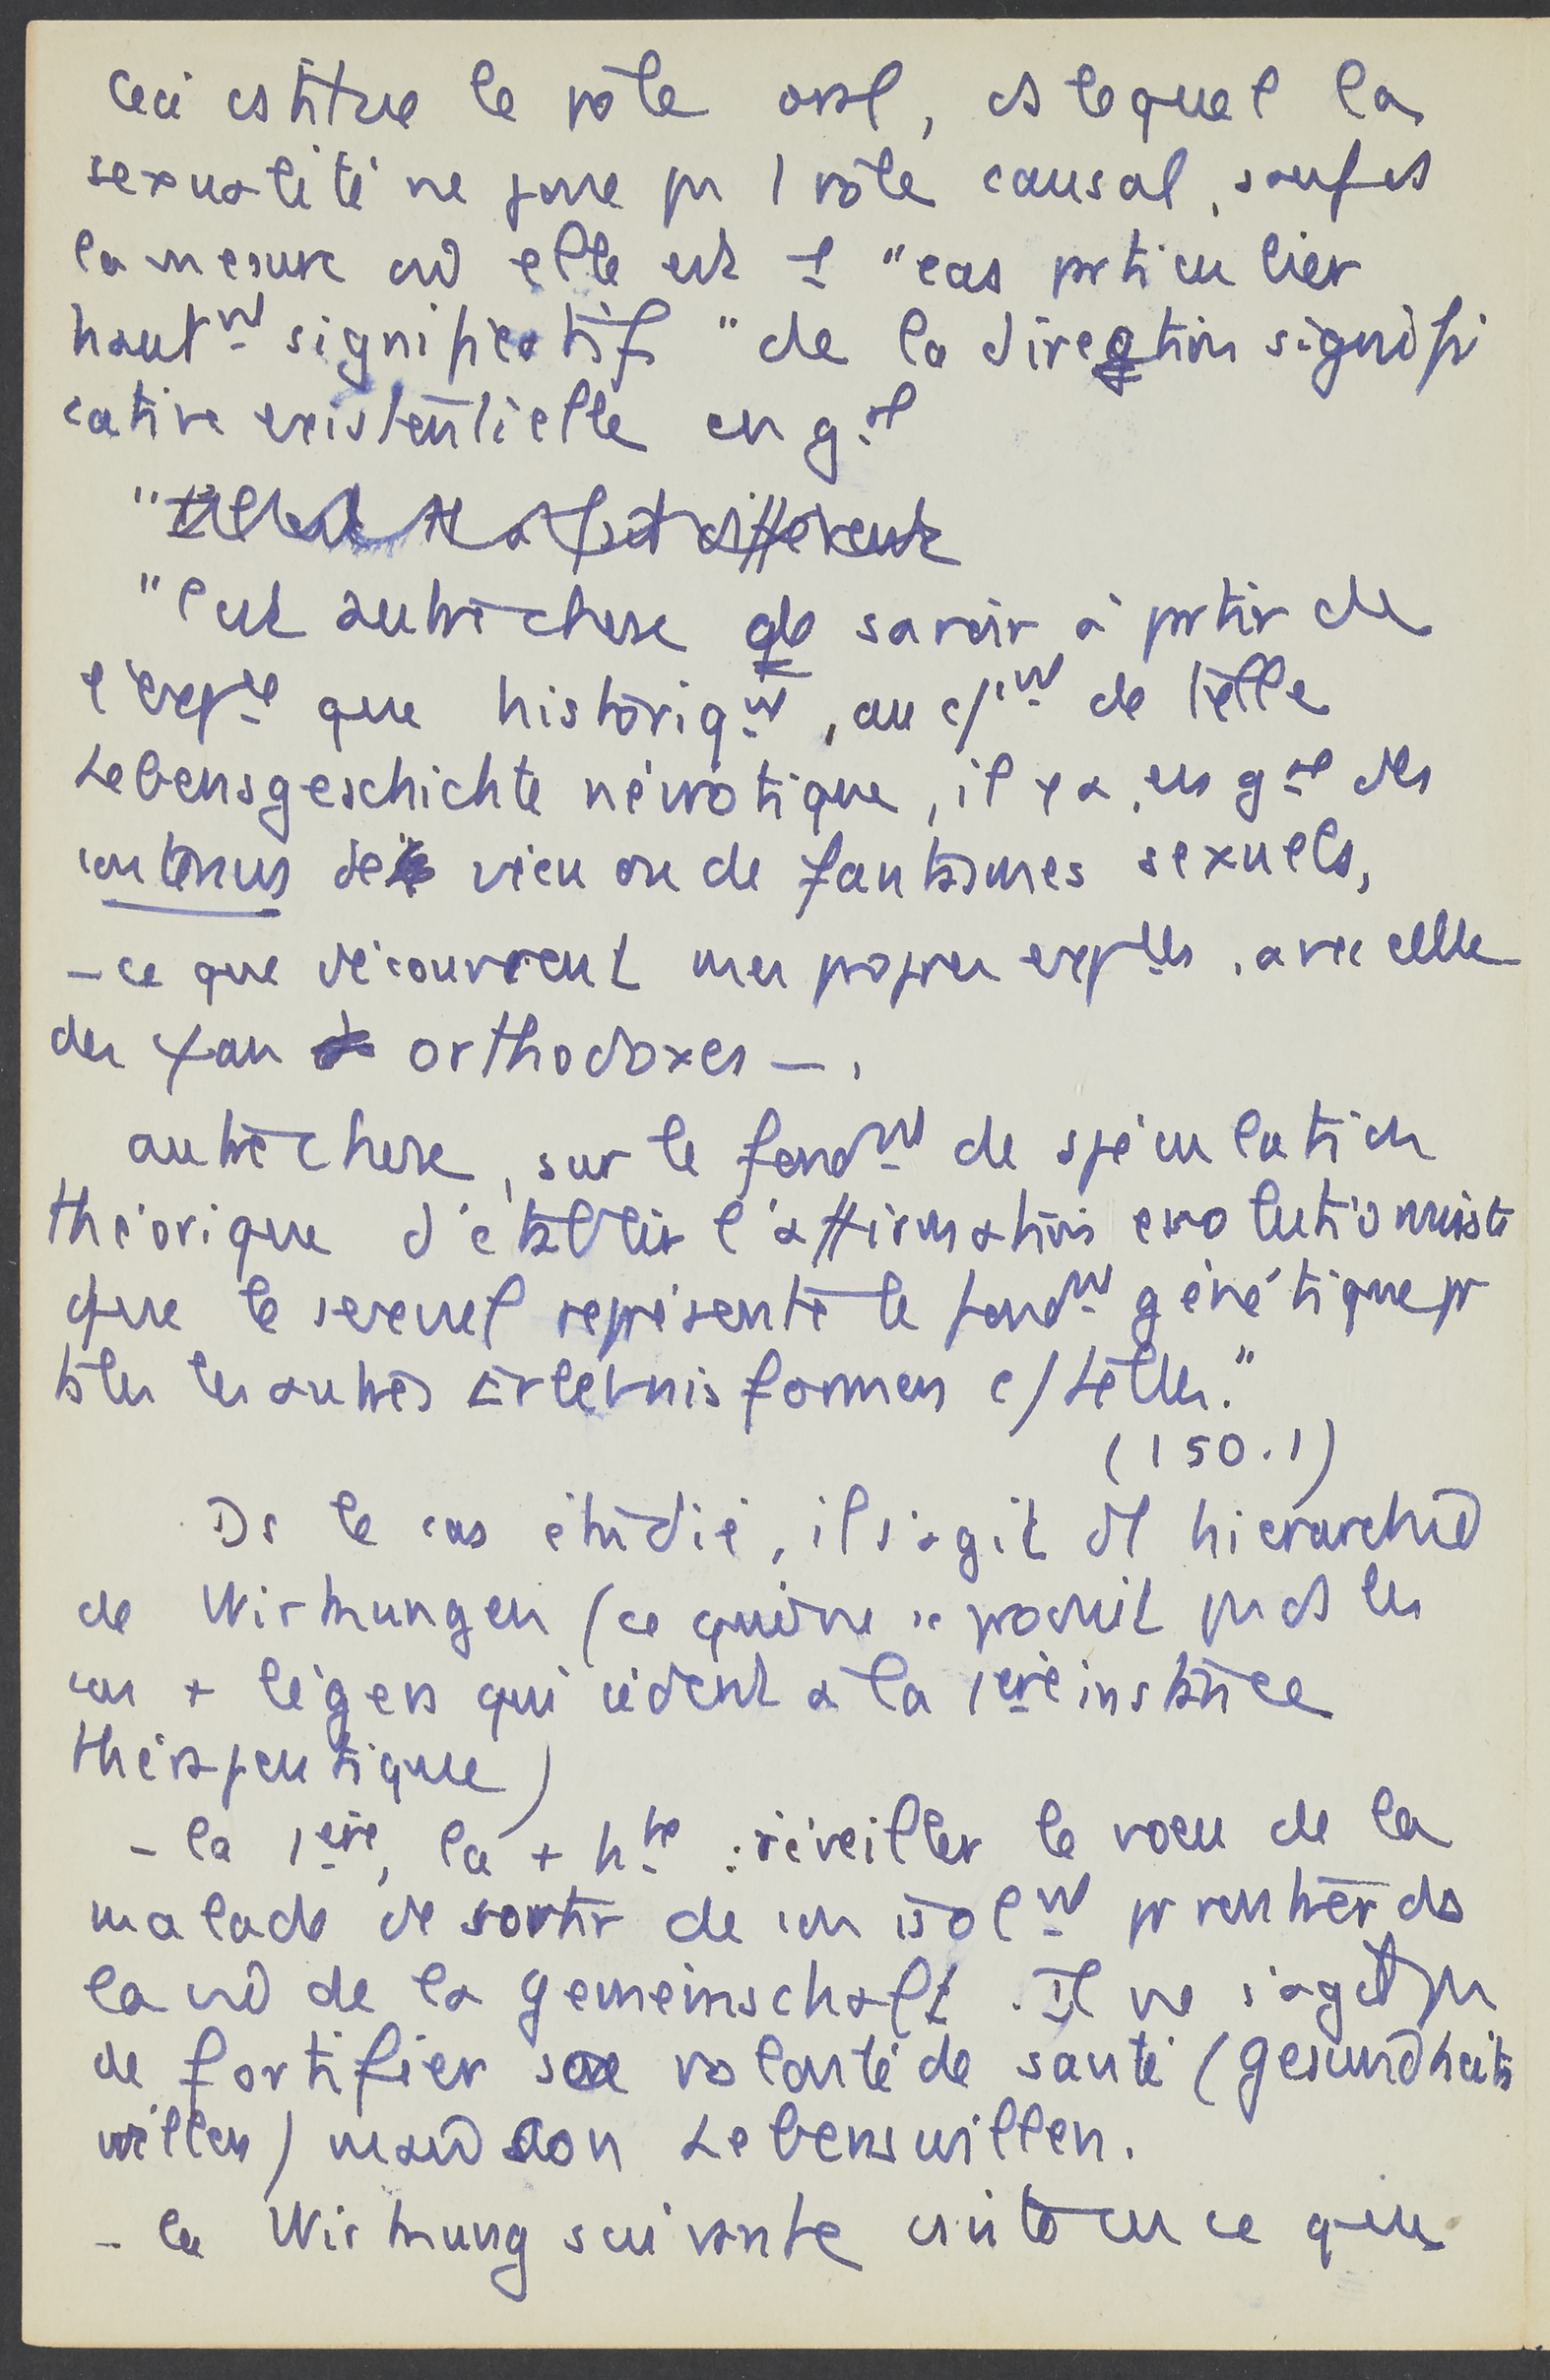 Ceci cstitue le pôle oral, ds lequel la
sexualité ne joue pas 1 rôle causal, sauf ds
la mesure où elle est 1 "cas particulier
hautmt significatif" de la direction signifi
cative existentielle en gal
"C'est autre chose de savoir à partir de
l'expce que historiqmt, au c/mt de telle
Lebensgeschichte névrotique, il y a, en gal des
contenus de vécu ou de fantasmes sexuels,
- ce que découvrent mes propres expces, avec celle
des ψan orthodoxes -,
autre chose, sur le fondmt de spéculation
théorique d'établir l'affirmation evolutionniste
que le sexuel représente le fondmt génétique pr
ttes les autres Erlebnisformen c/telles."
(150.1)
Ds le cas étudié, il s'agit d'1 hierarchie
de Wirkungen (ce qui ne se produit pas ds les
cas + légers qui cèdent à la 1ère instance
thérapeutique)
- la 1ère, la + hte : réveiller le voeu de la
malade de sortir de son isolmt pr rentrer ds
la vie de la Gemeinschaft. Il ne s'agit pas
de fortifier sa volonté de santé (Gesundheits
willen) mais son Lebenswillen.
- la Wirkung suivante csiste en ce que